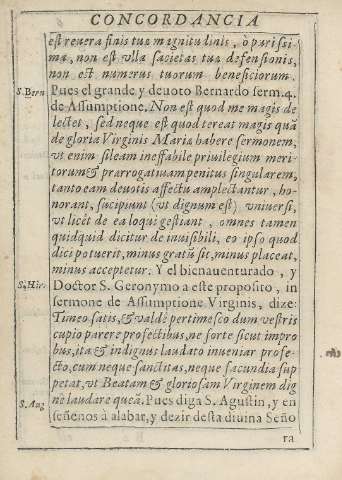 CONCORDANCIA
est revera finis tuæ magnitudinis, ò purissi-
ma, non est vlla sacietas tuæ defensionis,
non est numerus tuorum beneficiorum.
S. Bern Pues el grande y deuoto Bernardo serm. 4.
de Assumptione. Non est quod me magis de
lectet, sed neque est quod terreat magis quã
de gloria Virginis Mariæ habere sermonem,
vt enim sileam ineffabile priuilegium meri-
torum & prærrogatiuam penitus singularem,
tanto eam deuotis affectu amplectantur, ho-
norant, sucipiunt (vt dignum est) vniuersi,
vt licèt de ea loqui gestiant, omnes tamen
quidquid dicitur de inuisibili, eo ipso quod
dici potuerit, minus gratũ sit, minus placeat,
minus acceptetur. Y el bienauenturado, y
S. Hir. Doctor S. Geronymo a este proposito, in
sermone de Assumptione Virginis, dize:
Timeo satis, & valdè pertimesco dum vestris
cupio parere profectibus, ne forte sicut impro
bus, ita & indignus laudator inueniar profe-
cto, cum neque sanctitas, neque facundia sup
petat, vt Beatam & gloriosam Virginem dig
nè laudare queã. Pues diga S. Agustin, y en
S. Aug señenos à alabar, y dezir desta diuina Seño
ra